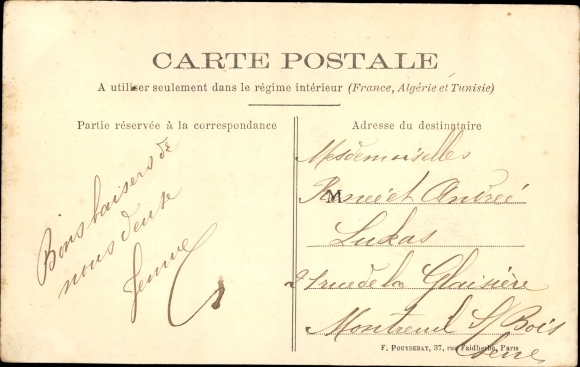 CARTE POSTALE
A utiliser seulement dans le régime intérieur (France, Algérie et Tunisie)
Partie réservée à la correspondance
Bons baisers de
nous deux
Adresse du destinataire
Mesdemoiselles
M
Renée et Andrée
Lukas
rue de la Glaisière
Montreuil S/ Bois
F. POUYDEBAT, 37, rue Faidherbe, Paris